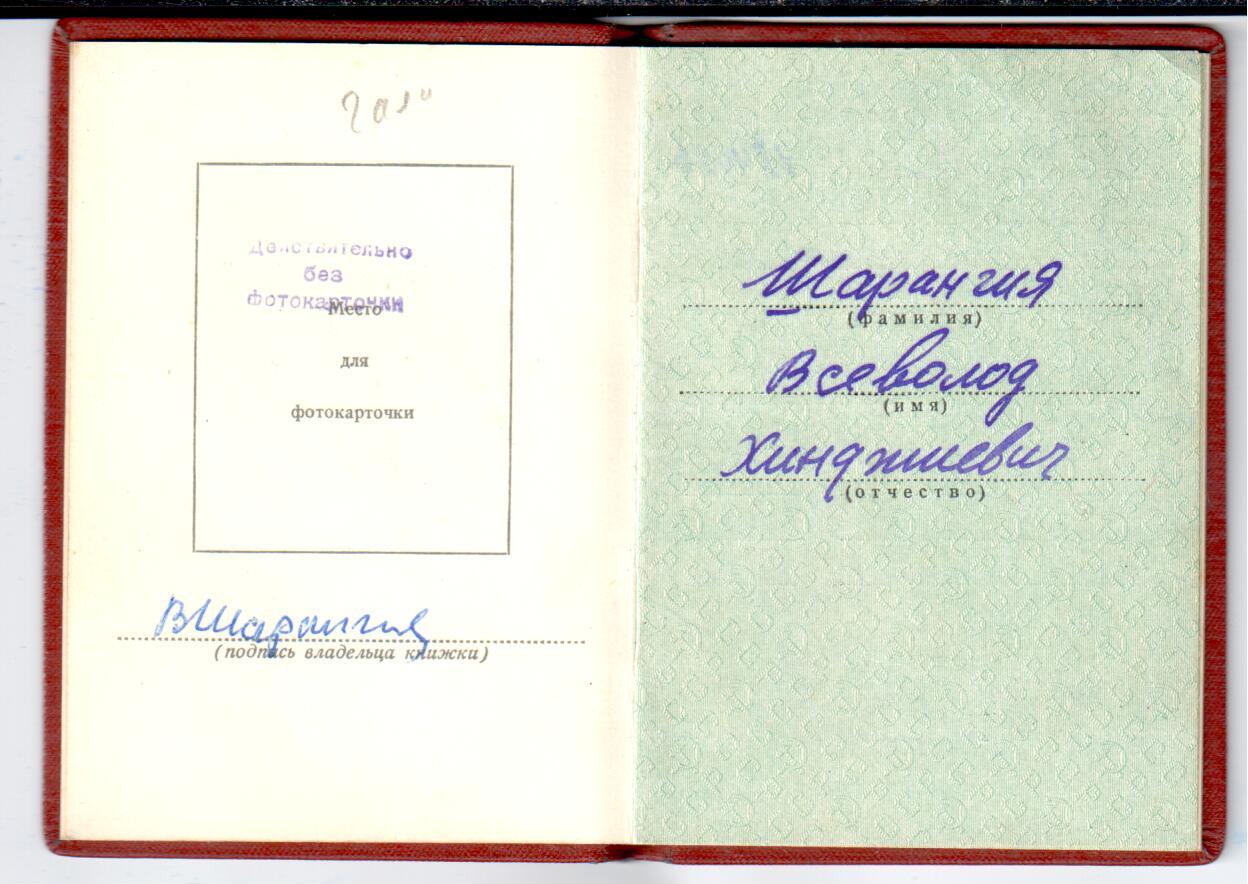 Действительно
без
фотокарточки
Место
для
фотокарточки
В Шарангия
(подпись владельца книжки)
Шарангия
(фамилия)
Всеволод
(имя)
Хинджиевич
(отчество)